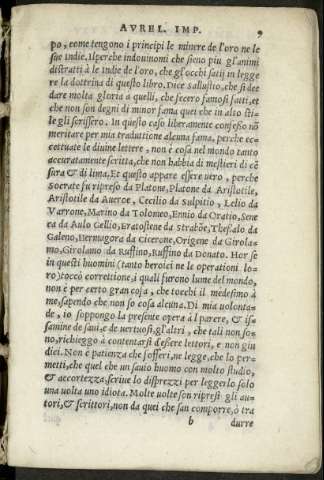 AVREL. IMP. 9
po, come tengono i principi le minere de l'oro ne le
sue Indie. Ilperche indouinomi che sieno piu gl'animi
distratti à le Indie de l'oro, che gl'occhi satij in legge
re la dottrina di questo libro. Dice sallustio, che si dee
dare molta gloria à quelli, che fecero famosi fatti, et
che non son degni di minor fama quei che in alto sti-
le gli scrissero. In questo caso liberamente confesso nō
meritare per mia traduttione alcuna fama, perche ec
cettuate le diuine lettere, non è cosa nel mondo tanto
accuratamente scritta, che non habbia di mestieri di cē
sura & di lima. Et questo appare essere uero, perche
Socrate fu ripreso da Platone, Platone da Aristotile,
Aristotile da Aueroe, Cecilio da Sulpitio, Lelio da
Varrone, Marino da Tolomeo, Ennio da Oratio, Sene
ca da Aulo Gellio, Eratostene da Strabōe, Thessalo da
Galeno, Hermagora da Cicerone, Origene da Girola-
mo, Girolamo da Ruffino, Ruffino da Donato. Hor se
in questi huomini (tanto heroici ne le operationi lo-
ro) toccò correttione, i quali furono lume del mondo,
non è per certo gran cosa, che tocchi il medesimo à
me, sapendo che non so cosa alcuna. Di mia uolonta-
de, io soppongo la presente opera à l parere, & is-
samine de saui, e de vertuosi, gl'altri, che tali non so-
no, richieggo à contentarsi d'essere lettori, e non giu
dici. Non è patienza che s'offeri, ne legge, che lo per-
metti, che quel che un sauio huomo con molto studio,
& accortezza, scriue lo disprezzi per leggerlo solo
una uolta uno idiota. Molte uolte son ripresi gli au-
tori, & scrittori, non da quei che san comporre, ò tra
b durre